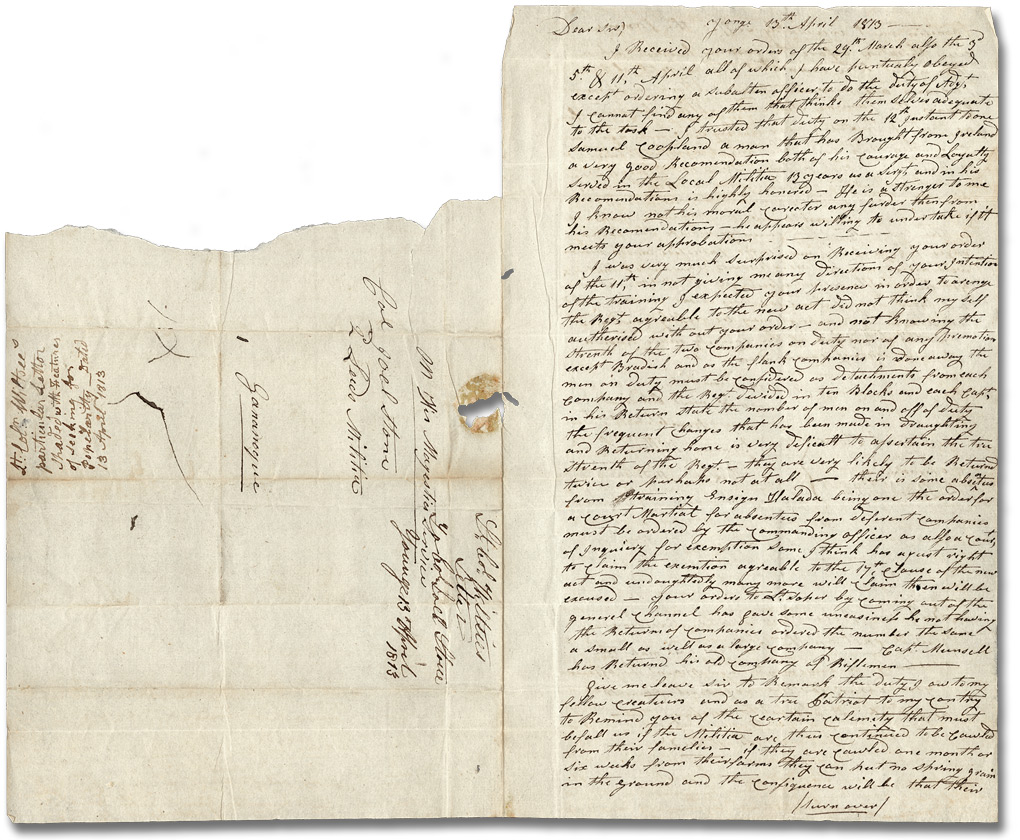 Dear Sir) Yonge 13th April 1813
I Received your orders of the 29th March also the 3d
5th & 11th April all of which I have puntualy obeyed
except ordering a subalten officer to do the duty of Adjt
I cannot find any of them that thinks themselves adequate
to the task — I trusted that duty on the 12th Instant to one
Samuel Coopland a man that has Brought from Ireland
a very good Recomendation both of his courage and Loyalty
served in the Local Militia 13 years as a Sergt and in his
Recomendations is highly honored — He is a stranger to me
I know not his moral carecter any farder then from
his Recomendations — he appears willing to undertake if it
meets your approbations
I was very much surprised on Receiving your order
of the 11th in not giving me any directions of your Intention
of the training I expected your presence in order to arenge
the Regt agreable to the new act did not think my self
autherised with out your order — and not knowing the
strenth of the two companies on duty nor of any promotion
except Bradish and as the flank companies is done away the
men on duty must be considered as detatchments from each
company and the Regt divided in ten Blocks and each Capt
in his Return state the number of men on and off of duty
the frequent changes that has been made in draughting
and Returning home is very deficalt to assertain the true
strenth of the Regt — they are very likely to be Returned
twice or perhaps not at all — their is some absentees
from training Ensign Halada being one the order for
a court Martial for absentees from deferent companies
must be ordered by the commanding officer as also a court
of Inquiery for exemption some I think has a just right
to claim the exemtion agreable to the 17th Clause of the new
act and undaughtedly many more will claim then will be
excused — your orders to Lt Soper by coming out of the
general channel has gave some uneasiness he not having
the Returns of companies ordered the number the same
a small as well as a large company — Capt Munsell
has Returnd his old company of Riflemen
Give me leave sir to Remark the duty I ow to my
fellow creatuers and as a true Patriot to my contry
to Remind you of the ceartain calemity that must
befall us if the Militia are thus continued to be cawled
from their families — if they are cawled one month or
six weeks from their farms they can put no spring grain
in the ground and the consiquence will be that their
/turn over/
On His Majesties Service
Col Joel Stone
2d Leeds Militia
Gananoque
Lt. Colo. Millsies
Letter
Yonge 13 April
1813
Lt. Colo.
particular Letter
of seeking for
Popelarity — Dated
13 April 1813